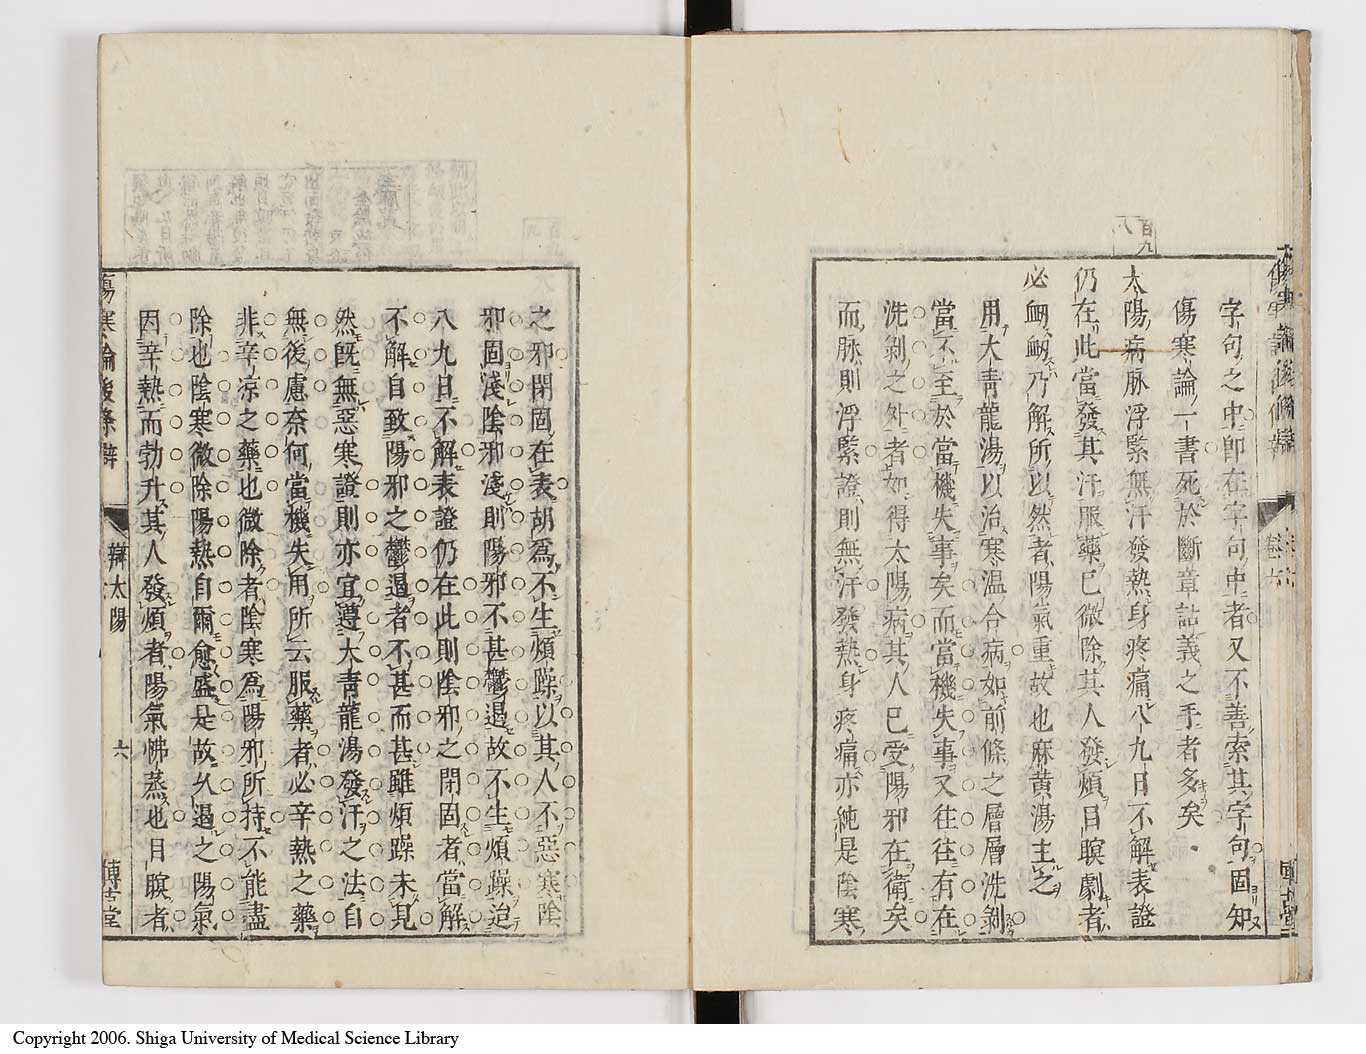 百九
八
字句之中卽在字句中者又不善索其字句固知
傷寒論一書死於斷章詁義之手者多矣
太陽病脉浮緊無汗發熱身疼痛八九日不解表證
仍在此當發其汗服藥已微除其人發煩目瞑劇者
必衄衄乃解所以然者陽氣重故也麻黃湯主之
用大靑龍湯以治寒溫合病如前條之層層洗剝
當不至於當機失事矣而當機失事又往往有在
洗剝之外者如得太陽病其人已受陽邪在衛矣
而脉則浮緊證則無汗發熱身疼痛亦純是陰寒
之邪閉固在表胡爲不生煩躁以其人不惡寒陰
邪固淺陰邪淺則陽邪不甚鬱遏故不生煩躁迨
八九日不解表證仍在此則陰邪之閉固者當解
不解自致陽邪之鬱遏者不甚而甚雖煩躁未見
然旣無惡寒證則亦宜遵大靑龍湯發汗之法自
無後慮奈何當機失用所云服藥者必辛熱之藥
非辛凉之藥也微除者陰寒爲陽邪所持不能盡
除也陰寒微除陽熱自爾愈盛是故久遏之陽氣
因辛熱而勃升其人發煩者陽氣怫蒸也目瞑者
傷寒論後條辨
辨太陽
六
博古堂
Copyright 2006. Shiga University of Medical Science Library